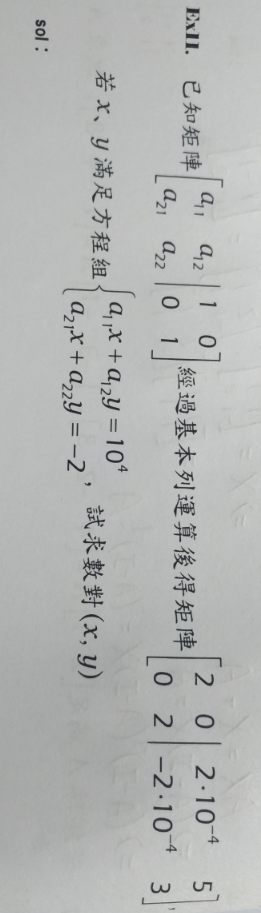 Ex11. 已知矩陣[a₁₁ a₁₂ | 1 0; a₂₁ a₂₂ | 0 1]經過基本列運算後得矩陣[2 0 | 2·10⁻⁴ 5; 0 2 | −2·10⁻⁴ 3],
若 x、y 滿足方程組{a₁₁x + a₁₂y = 10⁴; a₂₁x + a₂₂y = −2, 試求數對(x, y)
sol: